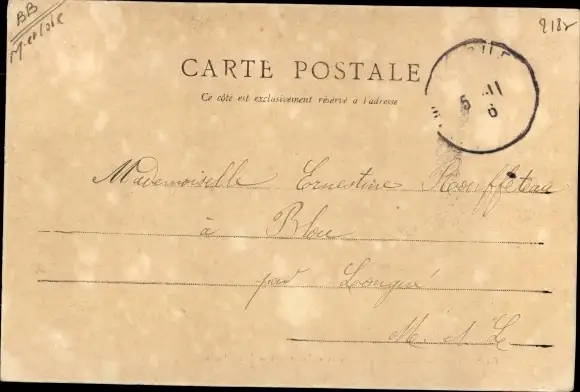 BB
M-et-Loire
2182
CARTE POSTALE
Ce côté est exclusivement réservé a l'adresse
5
6
Mademoiselle Ernestine Rouffeteau
à Blou
par Longué
M et L